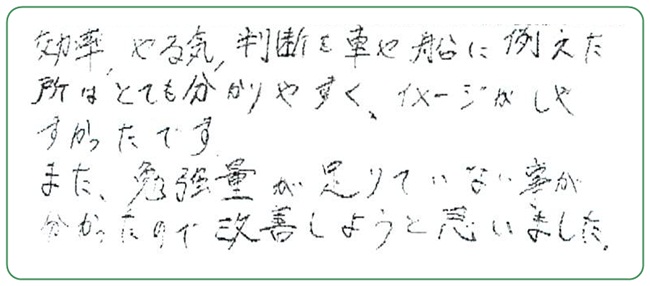 効率、やる気、判断を車や船に例えた
所は、とても分かりやすく、イメージがしや
すかったです
また、勉強量が足りていない事が
分かったので改善しようと思いました。